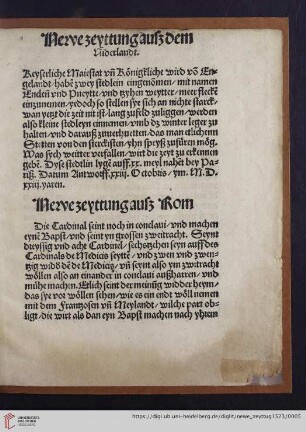 Newe zeyttung auß dem
Niderlandt.
Keyserliche Maiestat vñ Königkliche wird võ En-
gelandt habẽ zwey stedlein eingenomen / mit namen
vnd tzyhen weytter / meer fleckẽ
einzunemen / yedoch so stellen sye sich an nichte starck-
wan yetzt die zeit mit ist lang zufeld zuligẽ / werden
also kleine stedleyn einnemen / vmb dz winter leger zu
halten / vnd darauß zuuerhuetten / das man etlichenn
Stetten von den sterckisten / yhn speyß zufüren müg.
Was sych weitter verfallen / wirt die zeyt zu erkennen
gebẽ. Dyse stedtlin lygẽ auff .xx. meyl nahet bey Pa-
riß. Datum Antworff .xxiij. Octobris / ym. M. D.
xxiij. yaren.
Newe zeyttung auß Rom
Die Cardinal seint noch in conclaui / vnd machen
eynẽ Bapst / vnd seint yn grossen zwitracht. Seynt
dreyssig vnd acht Cardinel / sechtzehen seyn auff des
Cardinals de Medicis seyttẽ / vnd zwen vnd zwen-
tzig widd' dẽ de Medicis / vñ seynt also ym zwitracht
wöllen also an einander in conclaui außharren / vnd
mühe machen. Etlich seint der meinũg widder heym /
das sye vor wöllen sehen / wie es ein endt wöll nemen
mit dem Frantzosen vñ Meylandt / wilche part ob-
ligt / die wirt als dan eyn Bapst machen nach yhten
https://digi.ub.uni-heidelberg.de/diglit/newe_zeyttug1523/0005